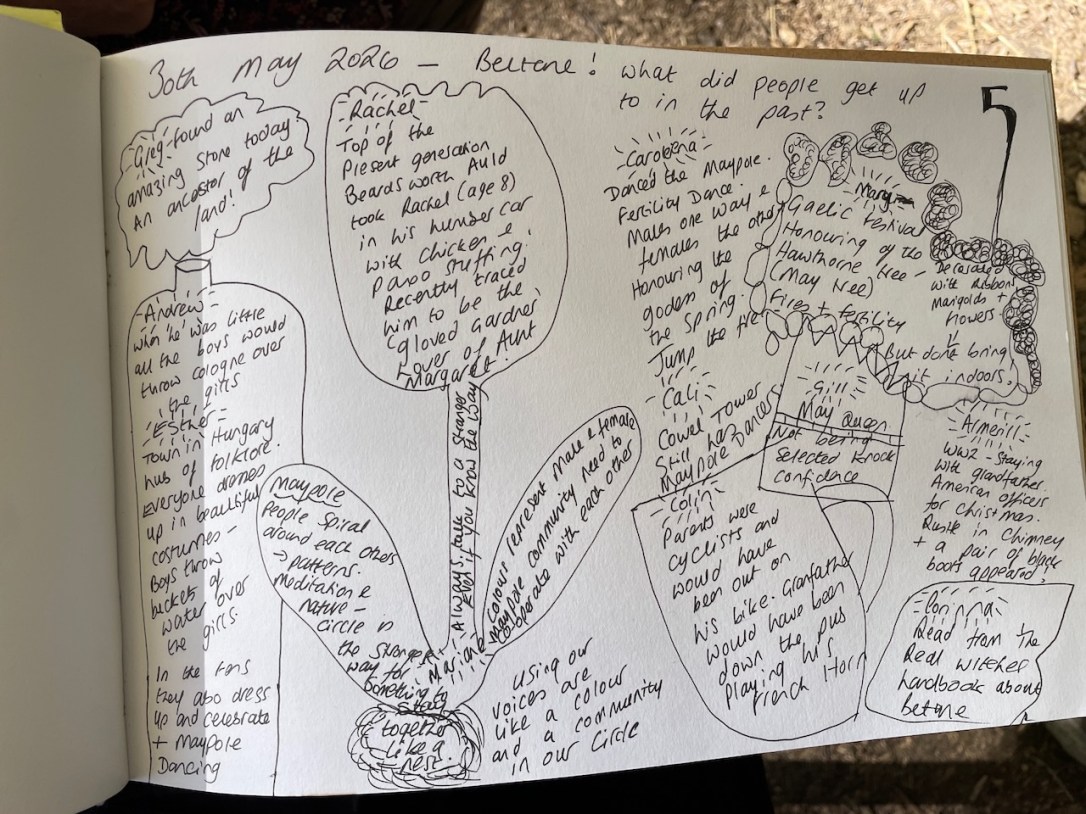 30th May 2026 – Beltane! What did people get up
to in the past?
5
Greg - found an
amazing stone today
An ancestor of the
land!
- Andrew -
When he was little
all the boys would
throw cologne over
the girls
- Esther -
Town in Hungary
hub of folklore.
Everyone dresses
up in beautiful
costumes -
Boys throw
buckets of
water over
the girls
In the
they also dress
up and celebrate
+ Maypole
Dancing
- Rachel -
Top of the
Present generation
Beardsworth Auld
took Rachel (age 8)
in his humber car
with chicken &
paxo stuffing.
Recently traced
him to be the
gloved Gardner
Lover of Aunt
Margaret!
Always talk to a stranger
Even if you know the way
Maypole
People spiral
around each others
→ patterns.
Meditation &
nature -
circle is
the strongest
way for
something to
stay
together
like a
nest.
- Mariane
Colours represent male & female
Maypole community need to
cooperate with each other
Using our
voices are
like a colour
and a community
in our circle
- Carolena -
Danced the Maypole.
Fertility Dance.
Males one way &
females the other
Honouring the
godess of
the spring.
Jump the fire
- Cali -
Cowel Tower
Still has
Maypole Dancers
- Colin -
Parents were
cyclists and
would have
been out on
his bike. Granfather
would have been
down the pub
playing his
french Horn
- Mary -
Gaelic Festival
Honouring of the
Hawthorne tree -
(May tree)
Fires + fertility
Decorated
with Ribbon
Marigolds +
flowers
But dont bring
it indoors,
Gill
May Queen.
Not being
selected knock
confidence
Armerill
WW2 - Staying
with grandfather.
American officers
for christmas.
Rustle in Chimney
+ a pair of black
boots appeared!
- Corinna -
Read from the
Real witches
handbook about
beltane